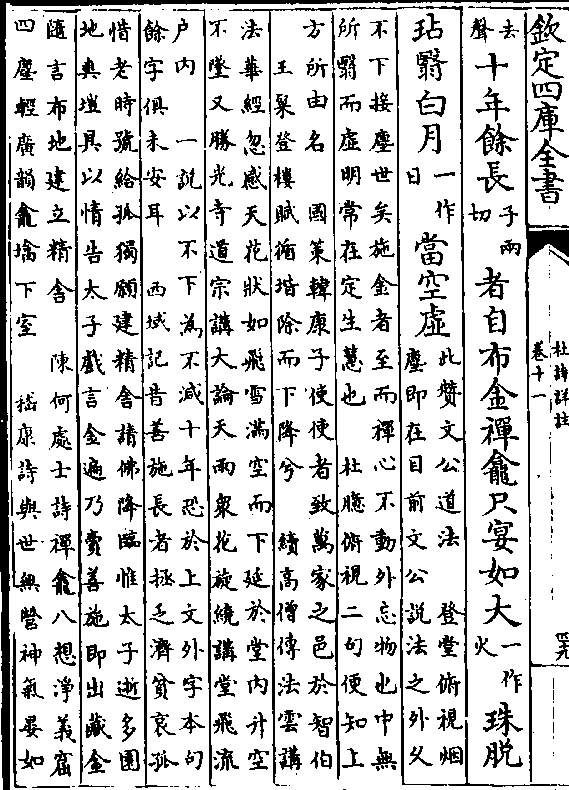 欽定四庫全書
杜詩詳註
卷十一
去聲十年餘長子兩切者自布金禪龕只宴如大一作火珠脫
玷翳白月一作日當空虛此贊文公道法　登堂俯視烟
塵即在目前文公說法之外久
不下接塵世矣施金者至而禪心不動外忘物也中無
所翳而虛明常在定生慧也　杜臆俯視二句便知上
方所由名　國策韓康子使使者致萬家之邑於智伯
王粲登樓賦循堦除而下降兮　續高僧傳法雲講
法華經忽感天花狀如飛雪滿空而下延於堂內升空
不墜又勝光寺道宗講大論天雨衆花旋繞講堂飛流
户内　一說以不下為不減十年恐於上文外字本句
餘字俱未安耳　西域記昔善施長者拯乏濟貧哀孤
惜老時號給孤獨願建精舍請佛降臨惟太子逝多園
地爽塏具以情告太子戲言金遍乃賣善施即出藏金
隨言布地建立精舍　陳何處士詩禪龕八想淨義窟
四塵輕廣韻龕塔下室　嵇康詩與世無營神氣晏如